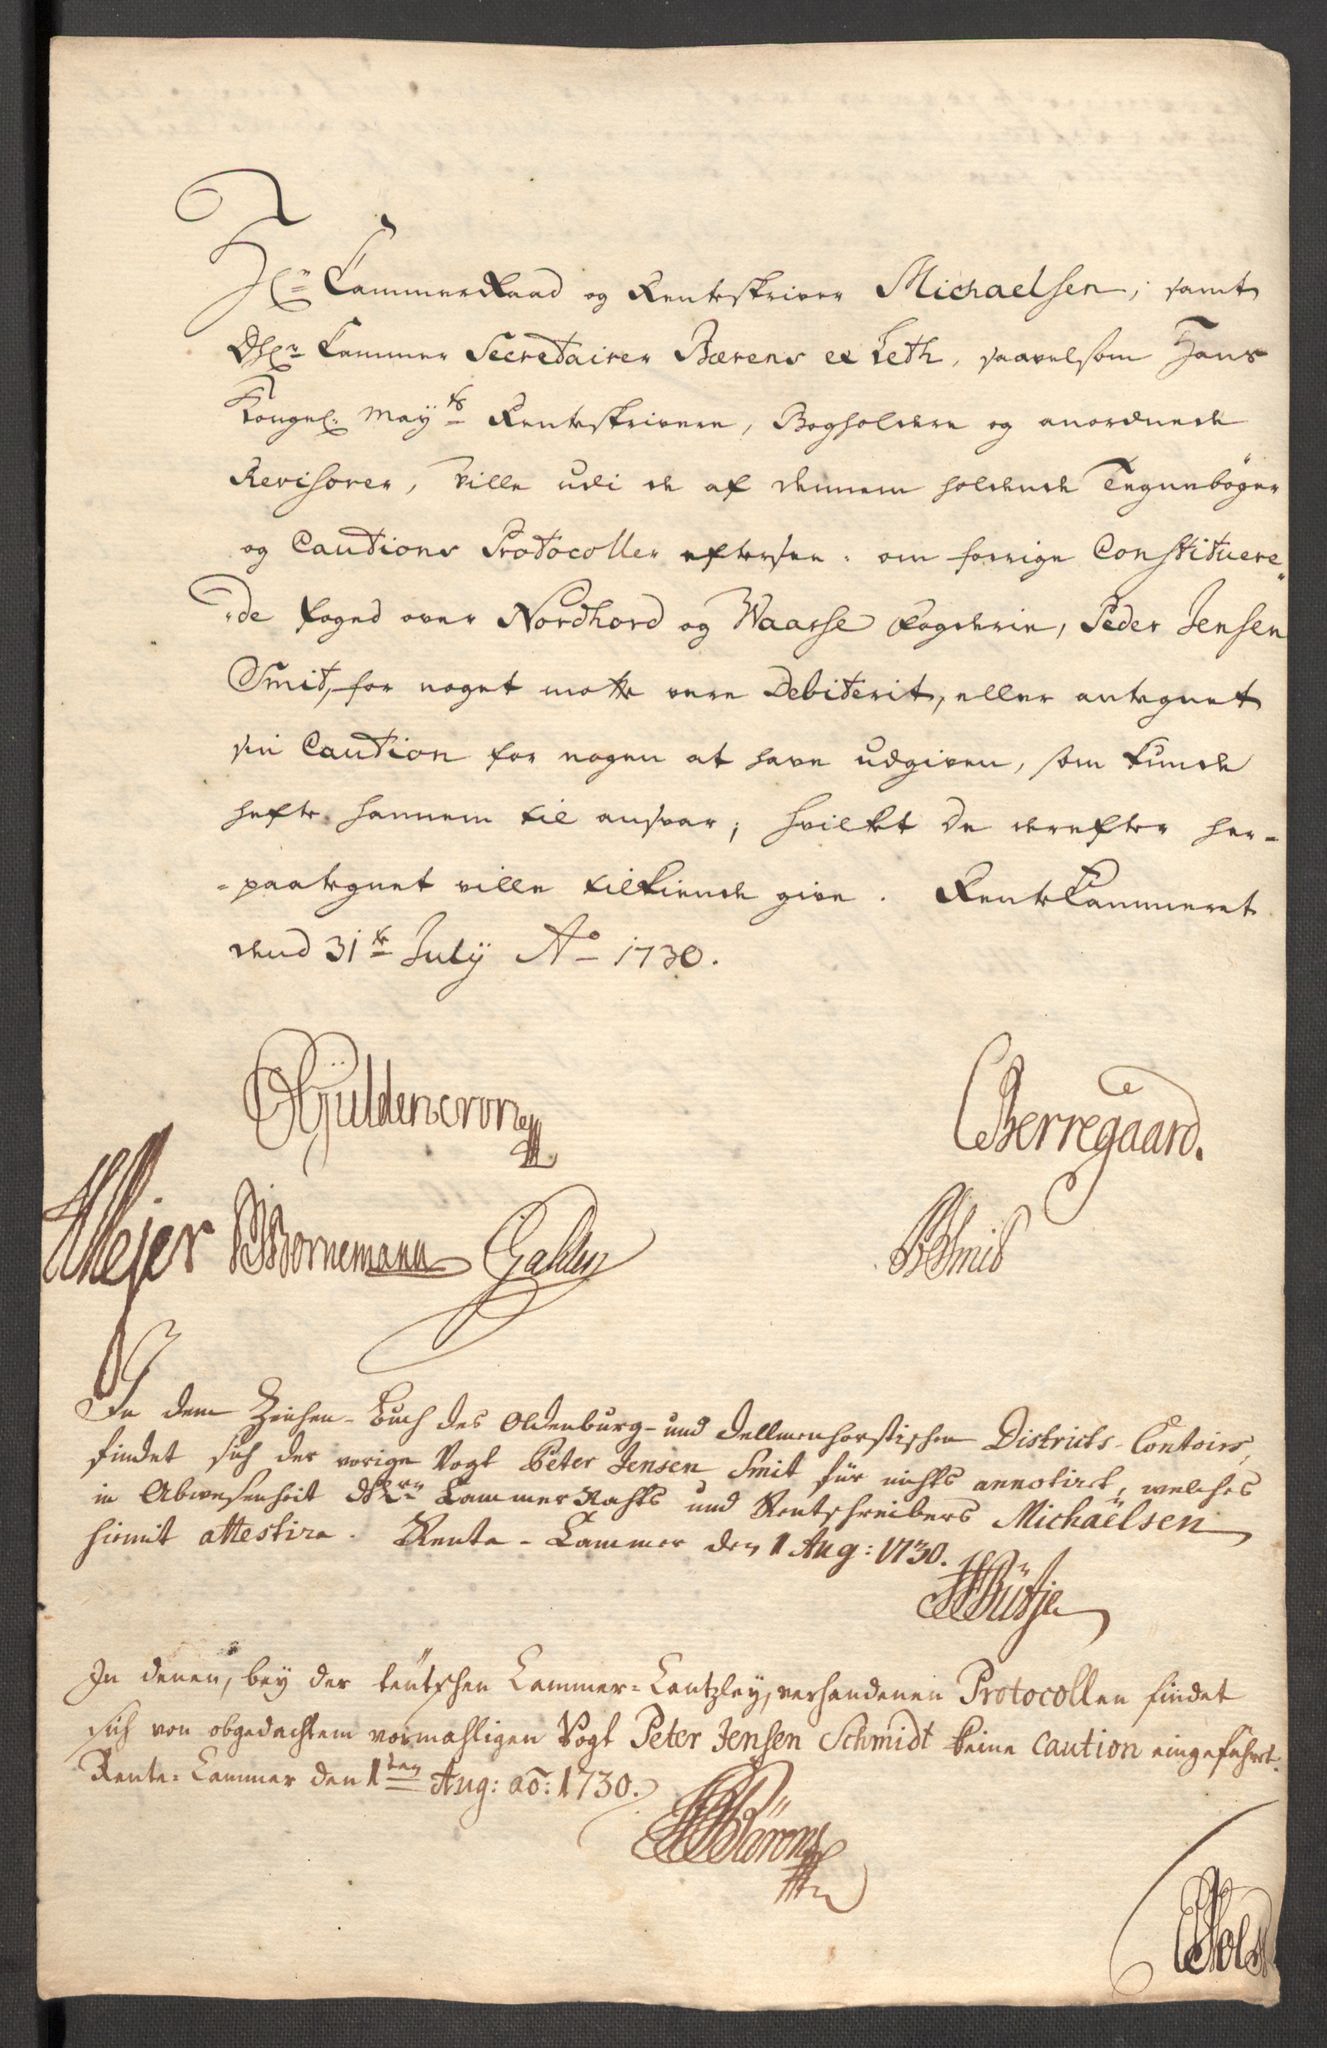 Hr: CammerRaad og Renteskriver Michaelsen, samt
DHrr: Cammer Secretairer Bærens et Leth, saavelsom Hans
Kongel: Mayts Renteskrivere, Bogholdere og anordnede
Revisorer, ville udi de af dennem holdende Tegnebøger
og Cautions Protocoller eftersee: om forrige Constituere-
-de Foged over Nordhord og Waasse Fogderie, Peder Jensen
Smit, for noget motte vere Debiterit, eller antegnet
sin Caution for nogen at have udgiven, som kunde
hefte hannem til ansvar; hvilket De derefter her-
-paategnet ville tilkiende give. RenteKammeret
dend 31te July Ao 1730.
Gyldencrone
CBerregaard.
Mejer Bornemann
BSmid
In dem Zeichen-Buch des Oldenburg- und Dellmenhorstischen Districts-Contoirs,
findet sich der vorige Vogt Peter Jensen Smit für nichts annotiret, welches
in Abwesenheit des Hrn CammerRahts und Rentschreibers Michaëlsen
hiemit attestire. Rente-Cammer den 1 Aug: 1730.
In denen, bey der teütschen Cammer-Cantzley, verhandenen Protocollen findet
sich von obgedachtem vormahligen Vogt Peter Jensen Schmidt keine caution eingeführt.
Rente-Cammer den 1ten Aug: ao: 1730.
Bärens
Holst